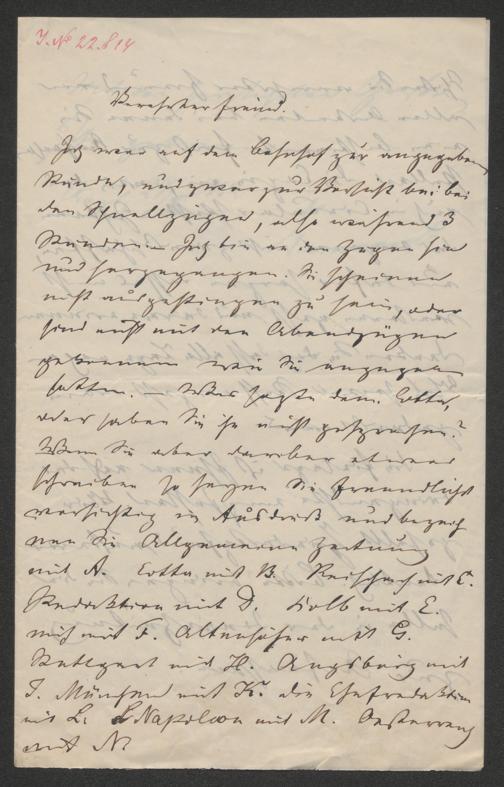 I. № 22.814
Verehrter Freund.
Ich war auf dem Bahnhof zur angegebenen
Stunde, und zwar zur Vorsicht bei beiden
den Schnellzügen, also während 3
Stunden. – Ich bin an den Zügen hin
und hergegangen. Sie scheinen
nicht ausgestiegen zu sein, oder
sind nicht mit den Abendzügen
gekommen wie Sie angegeben
hatten. – Was sagte denn Cotta,
oder haben Sie ihn nicht gesprochen?
Wenn Sie aber darüber etwas
schreiben so seyen Sie freundlichst
vorsichtig im Ausdruck und bezeich
nen Sie Allgemeine Zeitung
mit A. Cotta mit B. Reischach mit C.
Redaktion mit D. Kolb mit E.
mich mit F. Altenhöfer mit G.
Stuttgart mit H. Augsburg mit
I. München mit K. die Chefredaktion
mit L. L Napoleon mit M. Oesterreich
mit N.